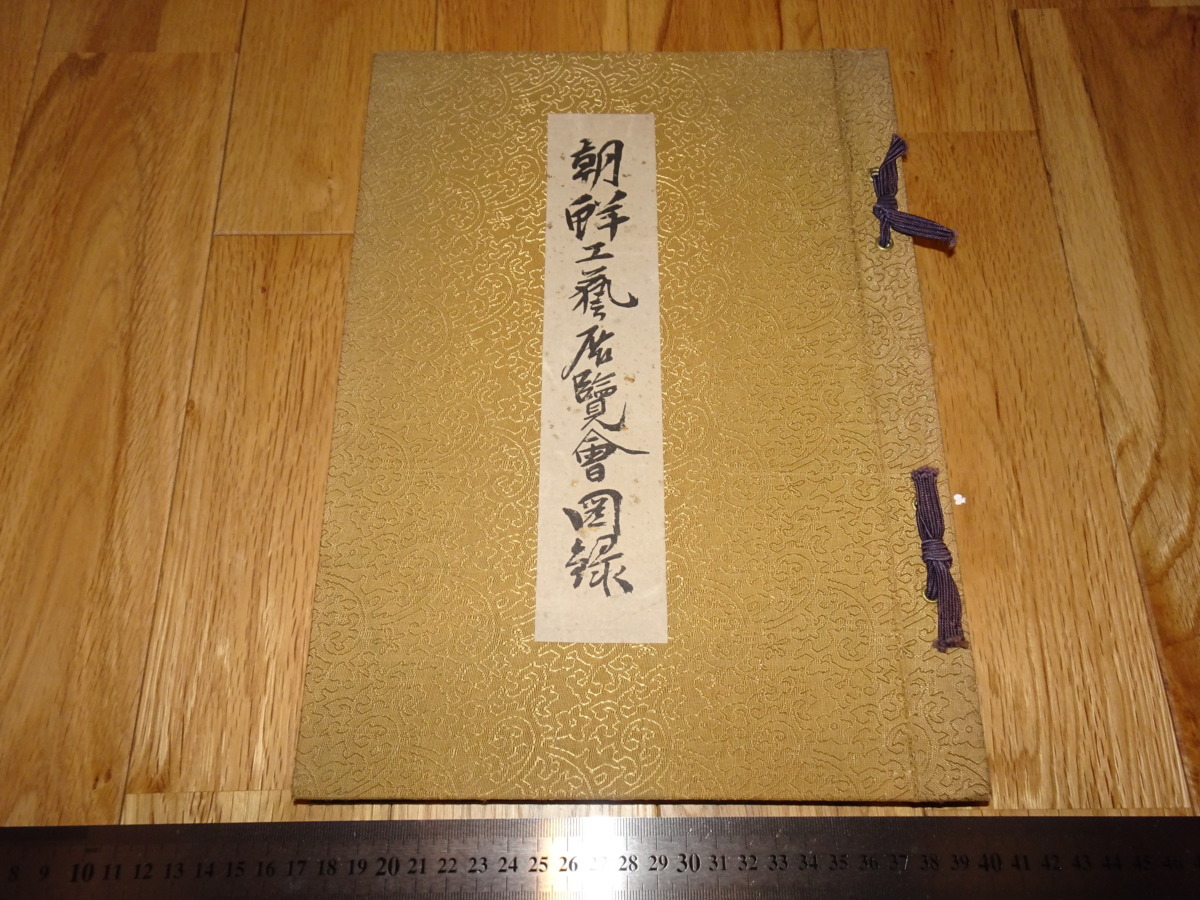 朝鮮工藝展覽會図録
8 9 10 11 12 13 14 15 16 17 18 19 20 21 22 23 24 25 26 27 28 29 30 31 32 33 34 35 36 37 38 39 40 41 42 43 44 45 46